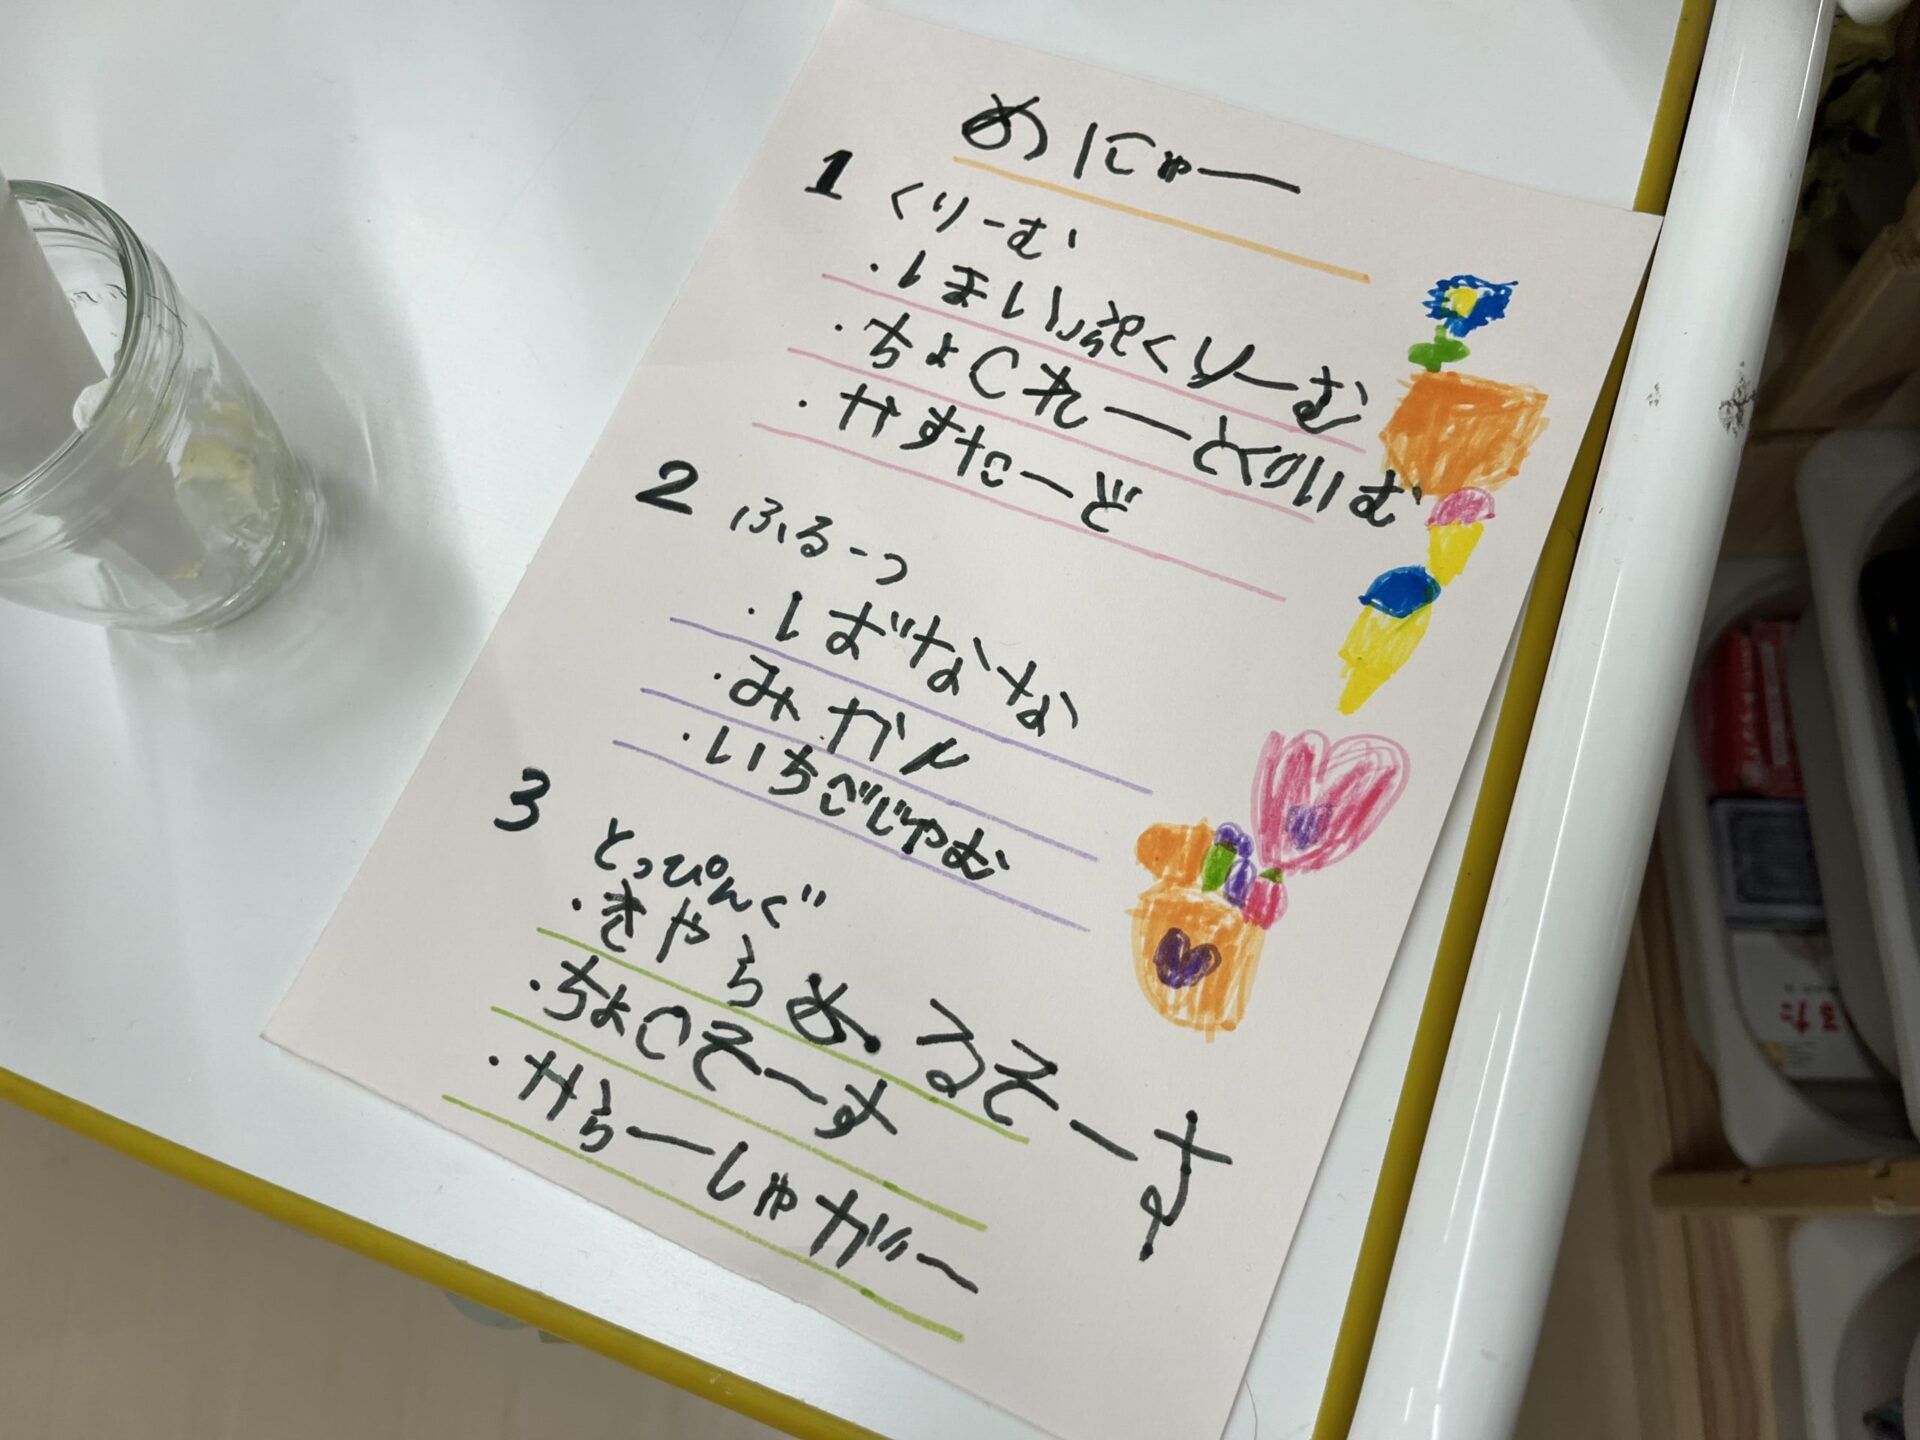 めにゅー
1 くりーむ
・ほいっぷくりーむ
・ちょこれーとくりいむ
・かすたーど
2 ふるーつ
・ばなな
・みかん
・いちごじゃむ
3 とっぴんぐ
・きゃらめるそーす
・ちょこそーす
・からーしゅがー